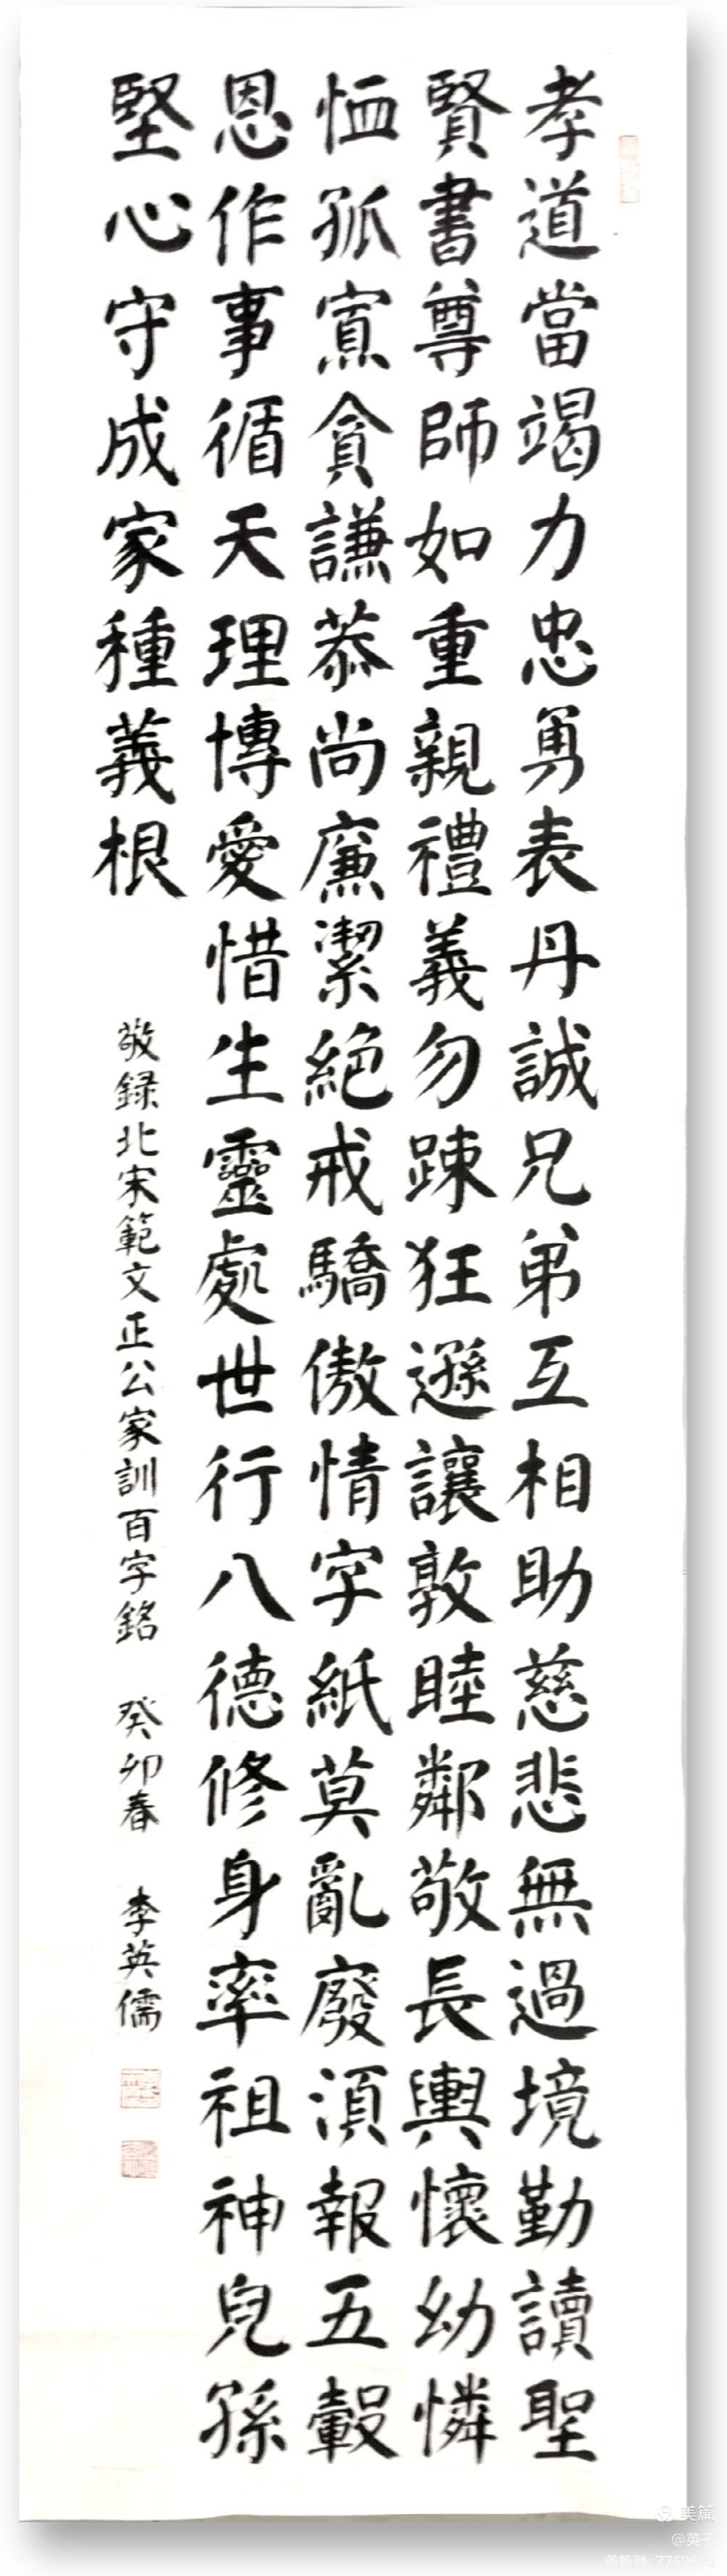 孝道當竭力忠勇表丹誠兄弟互相助慈悲無過境勤讀聖
賢書尊師如重親禮義勿踈狂遜讓敦睦鄰敬長輿懷幼憐
恤孤寡貧謙恭尚廉潔絕戒驕傲情字紙莫亂廢須報五穀
恩作事循天理博愛惜生靈處世行八德修身率祖神兒孫
堅心守成家種義根
敬録北宋範文正公家訓百字銘 癸卯春 李英儒
美篇
@英子